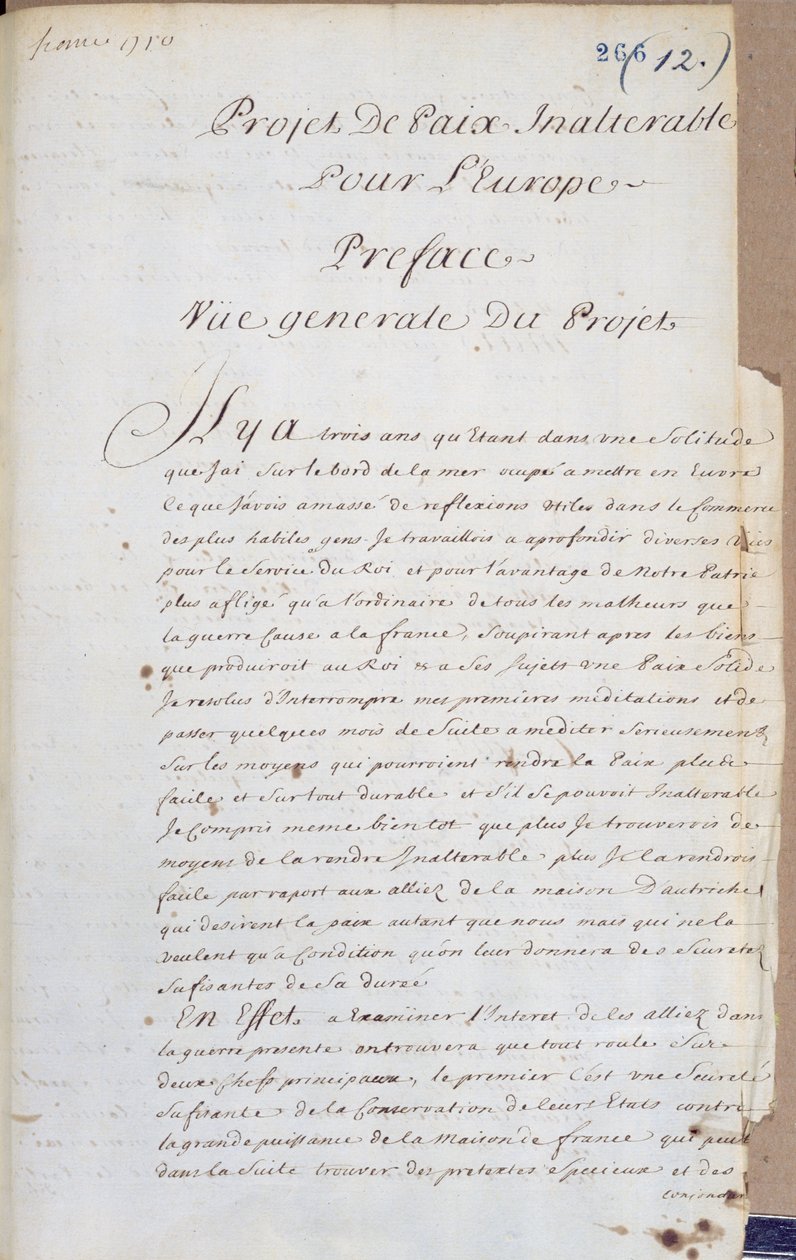 france 1750
266 (12.)
Projet De Paix Inalterable
Pour L'Europe
Preface
Vüe generale Du Projet
Il y a trois ans qu'Etant dans une Solitude
que J'ai Sur le bord de la mer ocupé a mettre en Euvre
ce que J'avois amassé de reflexions Utiles dans le Commerce
des plus habiles gens. Je travaillois a aprofondir diverses Vües
pour le Service du Roi et pour l'avantage de Notre Patrie
plus afligé qu'a l'ordinaire de tous les malheurs que
la guerre Cause a la france, Soupirant apres les biens
que produiroit au Roi & a Ses Sujets une Paix Solide
Je resolus d'Interrompre mes premieres meditations et de
passer quelques mois de Suite a mediter Serieusement
Sur les moyens qui pourroient rendre la Paix plus
facile et Sur tout durable et S'il Se pouvoit Inalterable
Je Compris meme bientot que plus Je trouverois de
moyens de la rendre Inalterable plus Je la rendrois
facile par raport aux alliez de la maison D'autriche
qui desirent la paix autant que nous mais qui ne la
veulent qu'a Condition qu'on leur donnera des Seuretez
Sufisantes de Sa dureé
En Effet a Examiner l'Interet de ces alliez dans
la guerre presente on trouvera que tout roule Sur
deux Chefs principaux, le premier C'est une Seureté
Sufisante de la Conservation de leurs Etats contre
la grande puissance de la Maison de france qui peut
dans la Suite trouver des pretextes Specieux et des